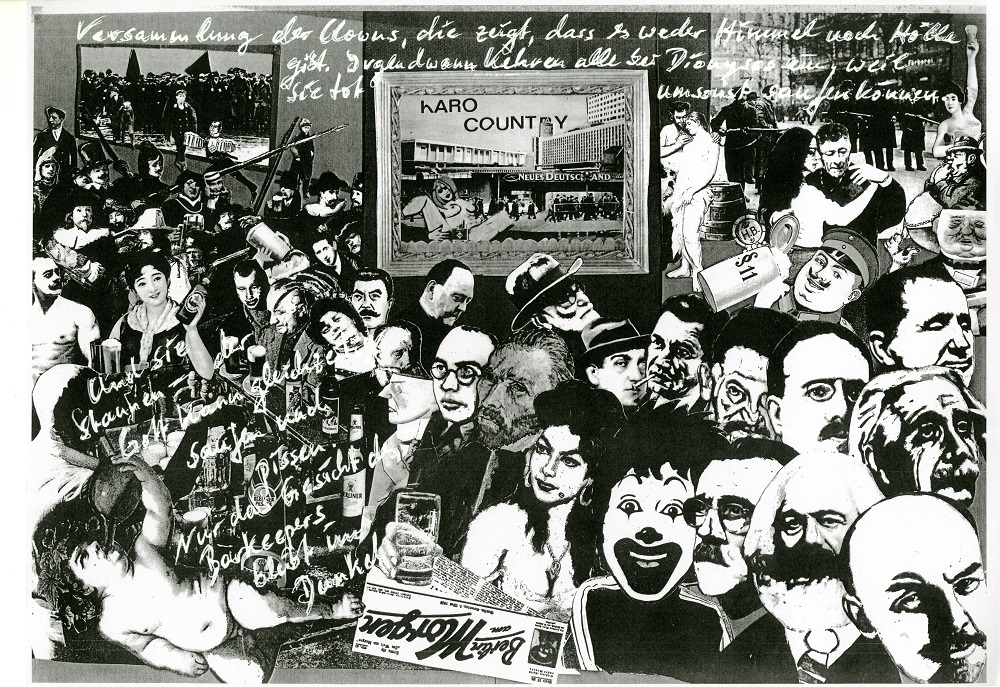 Versammlung der Clowns, die zeigt, dass es weder Himmel noch Hölle
gibt. Irgendwann kehren alle bei Dionysos ein, weil
sie tot umsonst saufen können
KARO
COUNTRY
NEUES DEUTSCHLAND
H.B
§ 11
Und sie
staunen der
Gott kann
saufen und
pissen
Nur das Gesicht des
Barkeepers
bleibt im
Dunkel
BERLINER
Berlin
am
Morgen